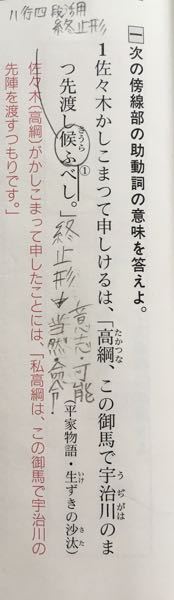 一 次の傍線部の助動詞の意味を答えよ。
1 佐々木かしこまつて申しけるは、「高綱、この御馬で宇治川のま
たかつな
うぢがは
つ先渡し候ふべし。」
さうら
①
(平家物語・生ずきの沙汰)
いけ
さた
佐々木(高綱)がかしこまって申したことには、「私高綱は、この御馬で宇治川の
先陣を渡すつもりです。」
ハ行四段活用
終止形
終止形
意志・可能
当然・命令!